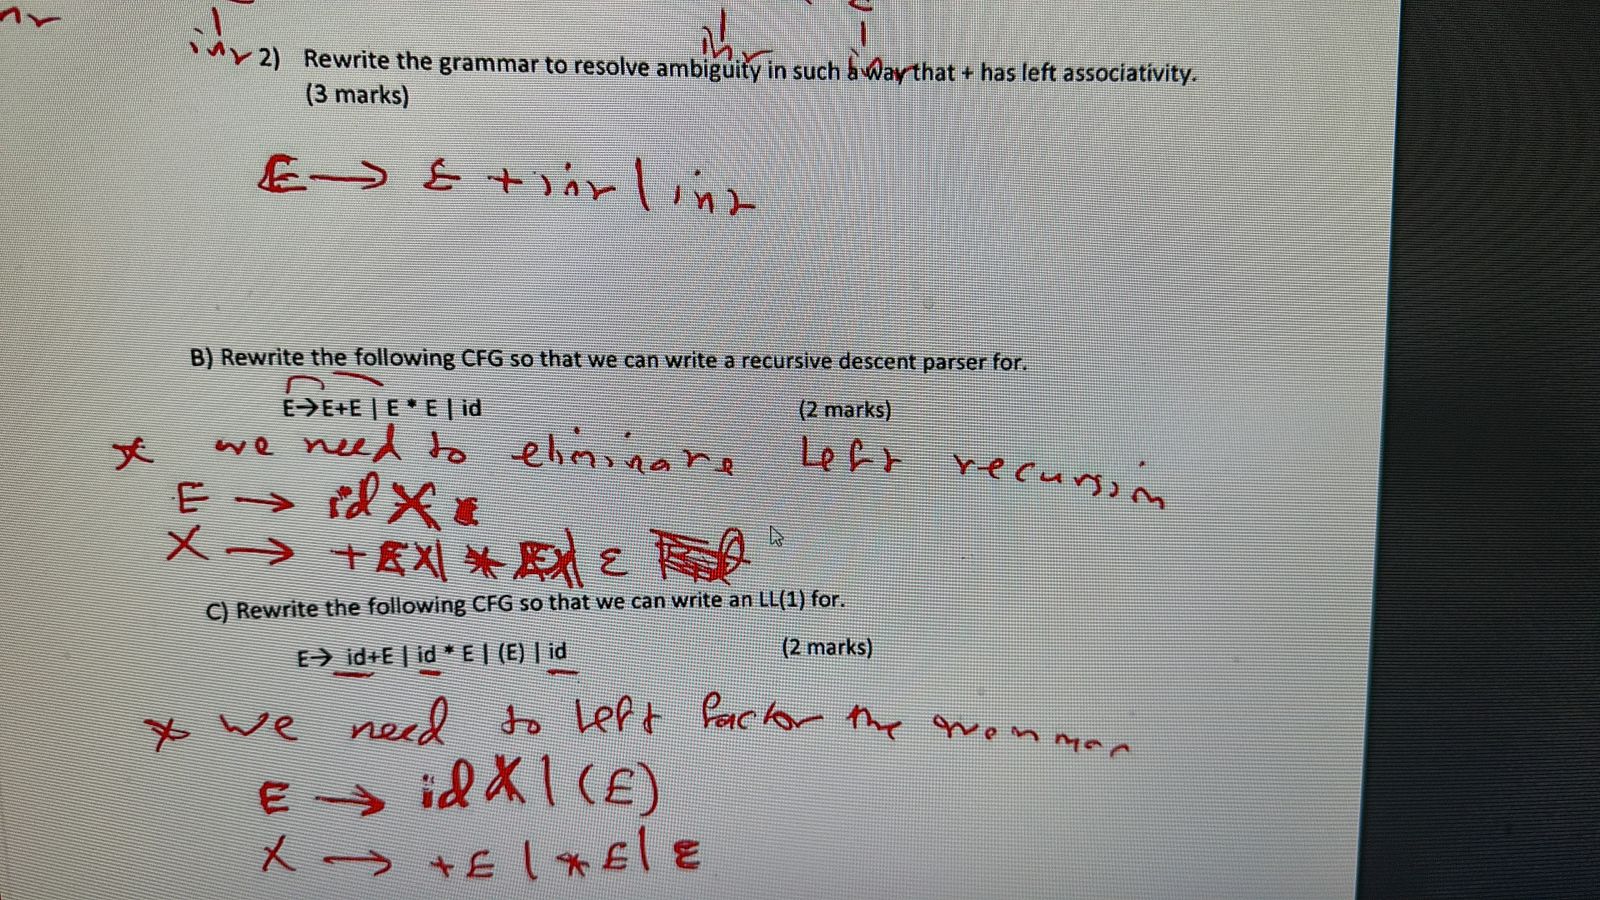 int
int
int
int
2) Rewrite the grammar to resolve ambiguity in such a way that + has left associativity.
(3 marks)
E → E + int | int
B) Rewrite the following CFG so that we can write a recursive descent parser for.
E→E+E | E * E | id (2 marks)
* we need to eliminate Left recursion
E → id X
X → + E X | * E X | ε
C) Rewrite the following CFG so that we can write an LL(1) for.
E→ id+E | id * E | (E) | id (2 marks)
* we need to left factor the grammar
E → id X | (E)
X → + E | * E | ε